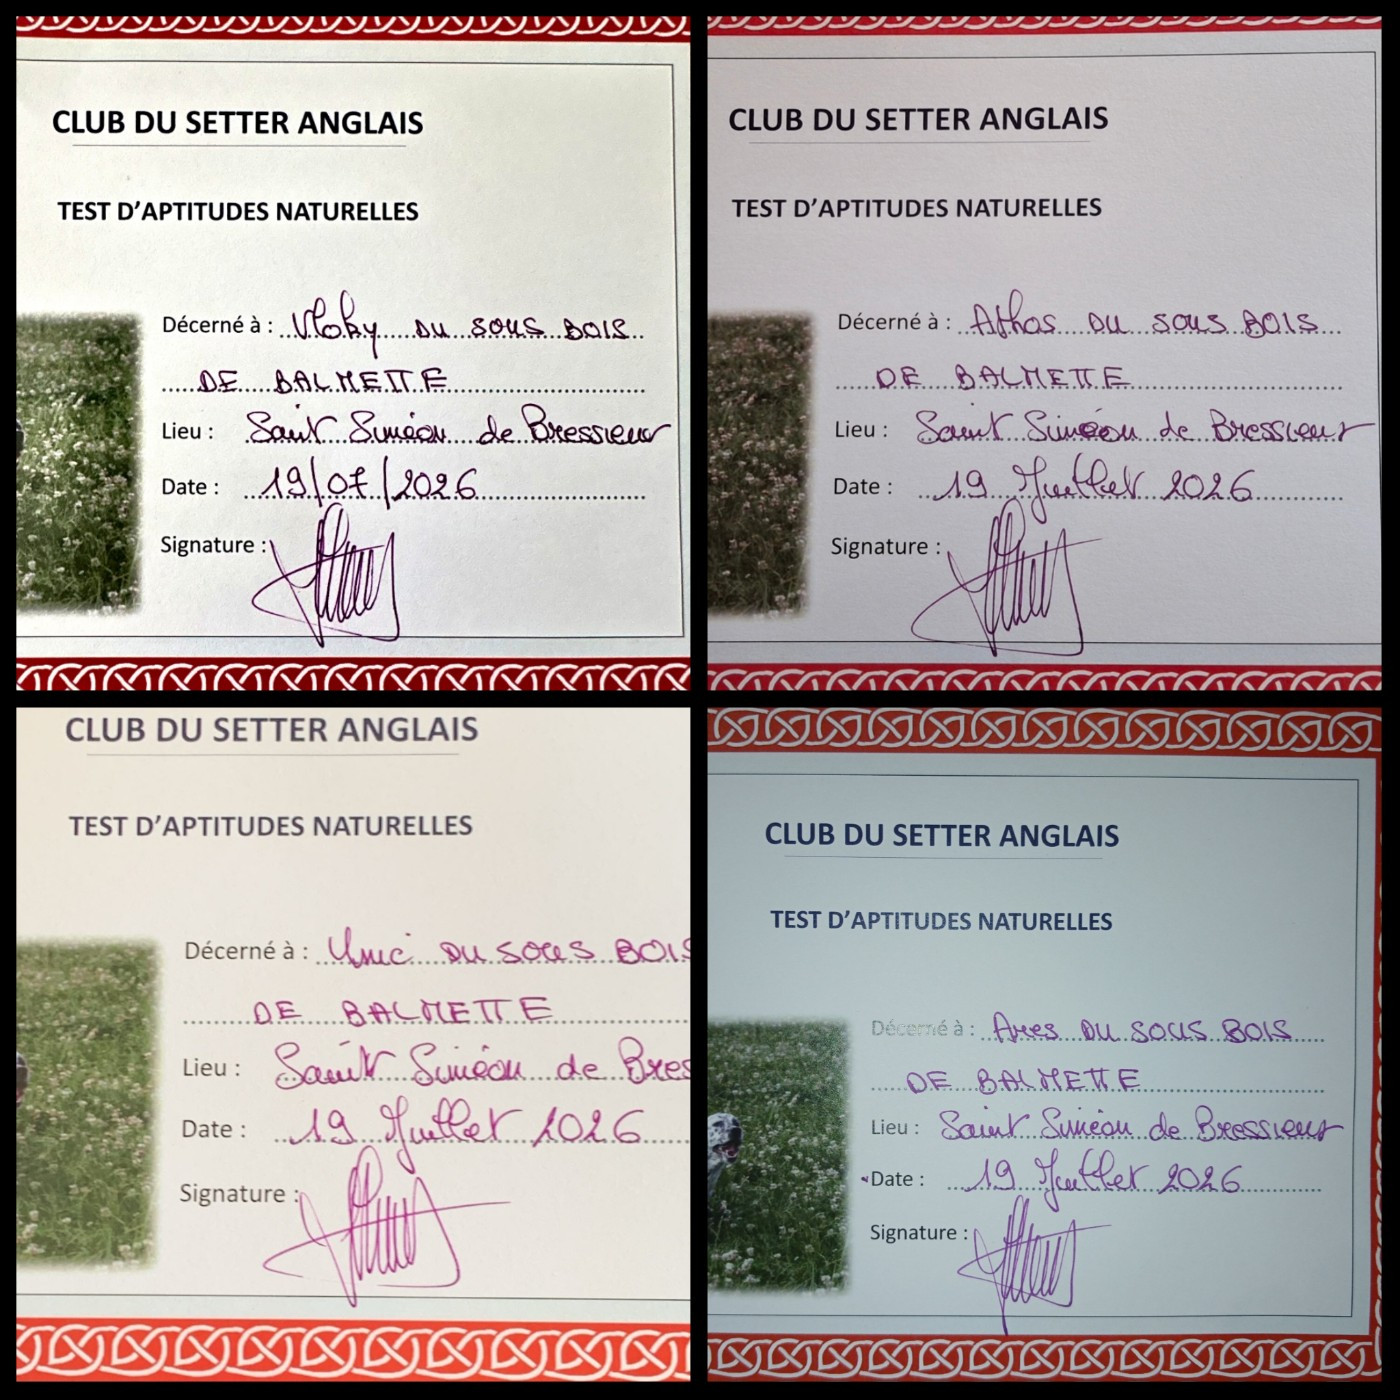 CLUB DU SETTER ANGLAIS
TEST D'APTITUDES NATURELLES
Décerné à : Vloky DU SOUS BOIS
DE BALMETTE
Lieu : Saint Siméon de Bressieux
Date : 19/07/2026
Signature :
CLUB DU SETTER ANGLAIS
TEST D'APTITUDES NATURELLES
Décerné à : Athos DU SOUS BOIS
DE BALMETTE
Lieu : Saint Siméon de Bressieux
Date : 19 Juillet 2026
Signature :
CLUB DU SETTER ANGLAIS
TEST D'APTITUDES NATURELLES
Décerné à : Unic DU SOUS BOIS
DE BALMETTE
Lieu : Saint Siméon de Bres
Date : 19 Juillet 2026
Signature :
CLUB DU SETTER ANGLAIS
TEST D'APTITUDES NATURELLES
Décerné à : Ares DU SOUS BOIS
DE BALMETTE
Lieu : Saint Siméon de Bressieux
Date : 19 Juillet 2026
Signature :